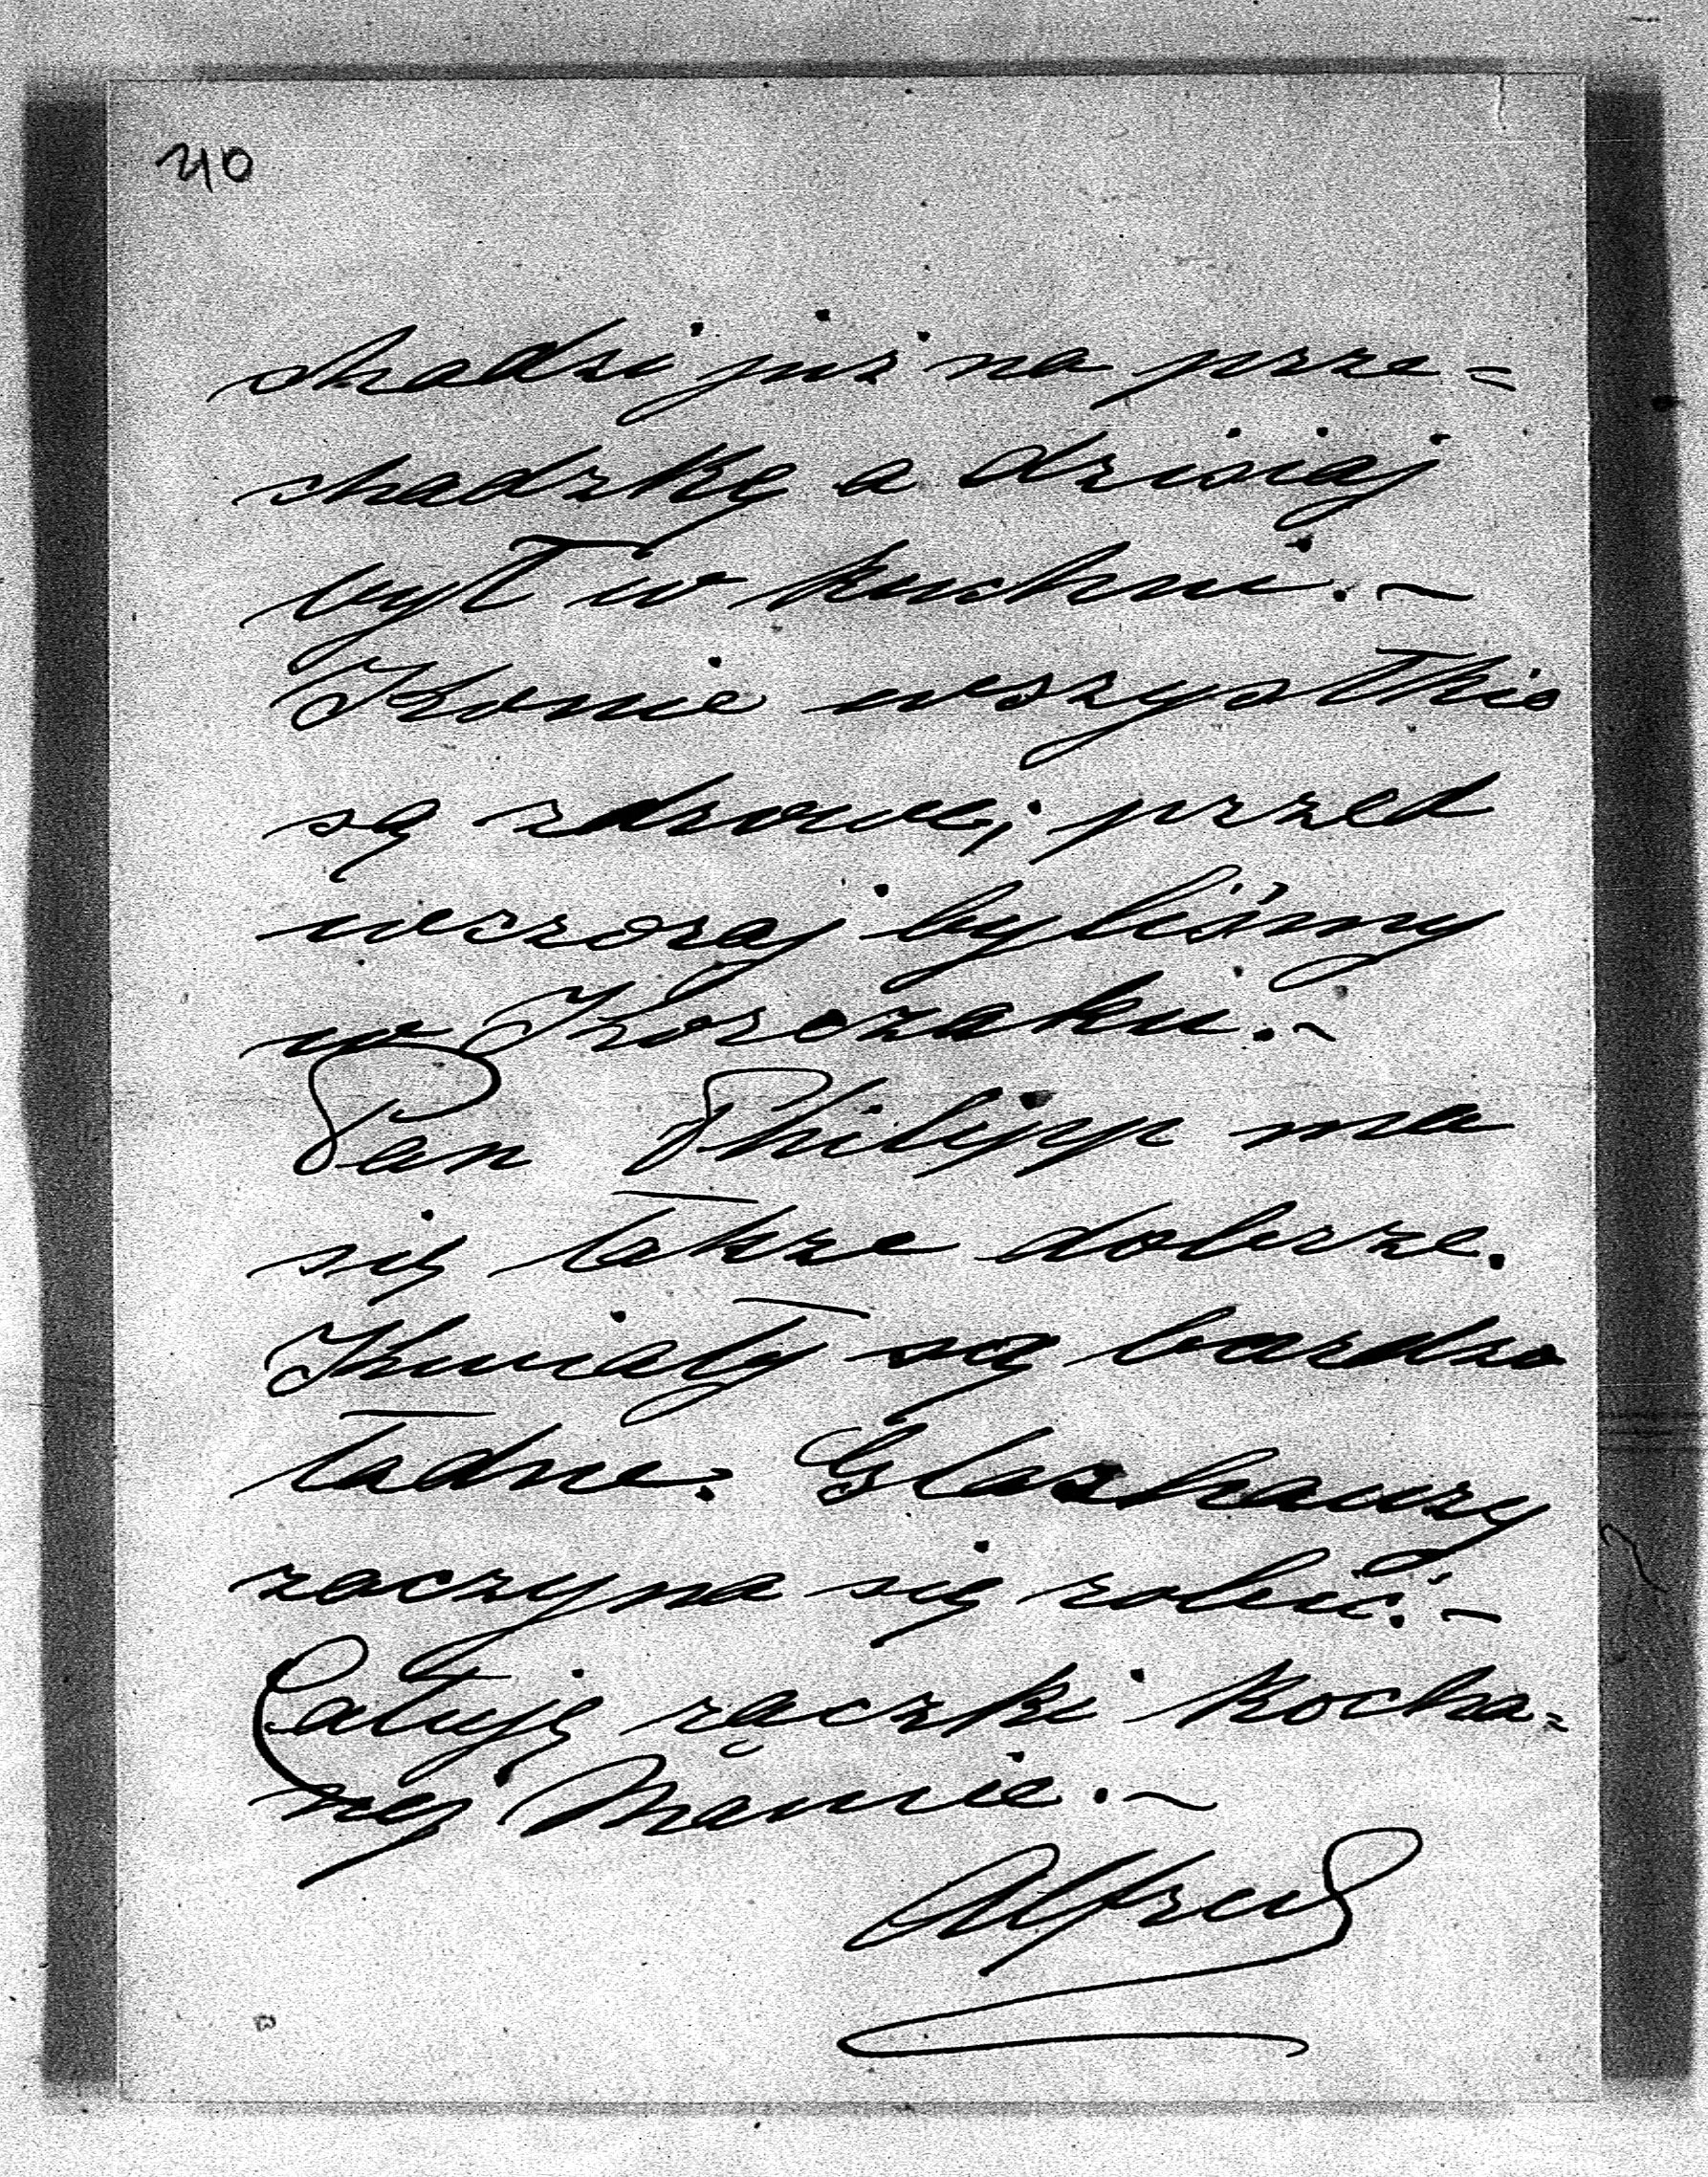 210
chadzi już na prze=
chadzkę a dzisiaj
był w kuchni. ~
Konie wszystkie
są zdrowe; przed
wczoraj byliśmy
w Korczaku. ~
Pan Philipp ma
się także dobrze.
Kwiaty są bardzo
ładne. Glashauzy
zaczyna się robić. ~
Całuję rączki Kocha=
nej Mamie. ~
Alfred